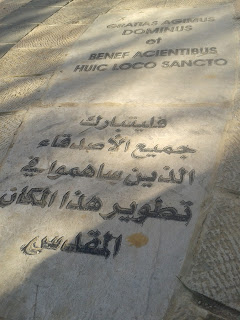 GRATIAS AGIMUS
DOMINUS
et
BENEFACIENTIBUS
HUIC LOCO SANCTO
فليشارك
جميع الأصدقاء
الذين ساهموا في
تطوير هذا المكان
المقدس